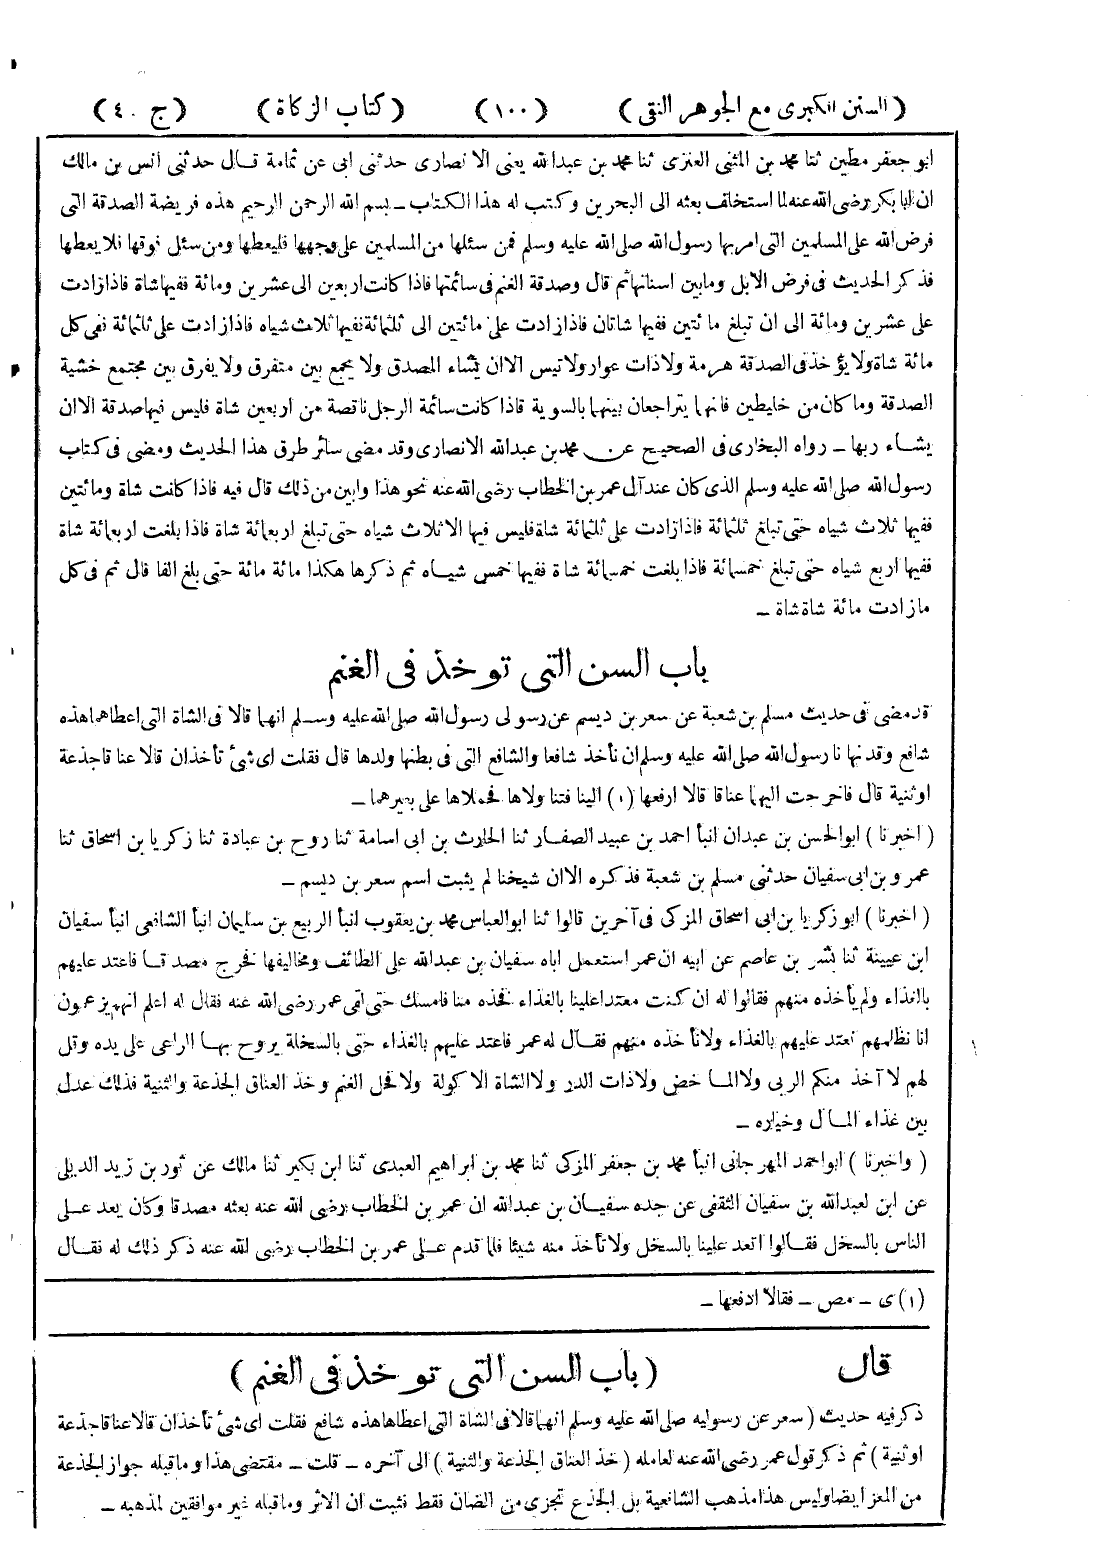 ( السنن الكبرى مع الجوهر النقى ) ( ١٠٠ ) ( كتاب الزكاة ) ( ج ٤٠ )
ابو جعفر مطين ثنا محمد بن المثنى العنزى ثنا محمد بن عبدالله يعنى الانصارى حدثنى ابى عن ثمامة قال حدثنى انس بن مالك
ان ابا بكر رضى الله عنه لما استخلف بعثه الى البحرين وكتب له هذا الكتاب – بسم الله الرحمن الرحيم هذه فريضة الصدقة التى
فرض الله على المسلمين التى امر بها رسول الله صلى الله عليه وسلم فمن سئلها من المسلمين على وجهها فليعطها ومن سئل فوقها فلا يعطها
فذكر الحديث فى فرض الابل وما بين اسنانها ثم قال وصدقة الغنم فى سائمتها فاذا كانت اربعين الى عشرين ومائة ففيها شاة فاذا زادت
على عشرين ومائة الى ان تبلغ مائتين ففيها شاتان فاذا زادت على مائتين الى ثلثمائة ففيها ثلاث شياه فاذا زادت على ثلثمائة ففى كل
مائة شاة ولا يؤخذ فى الصدقة هرمة ولا ذات عوار ولا تيس الا ان يشاء المصدق ولا يجمع بين متفرق ولا يفرق بين مجتمع خشية
الصدقة وما كان من خليطين فانهما يتراجعان بينهما بالسوية فاذا كانت سائمة الرجل ناقصة من اربعين شاة فليس فيها صدقة الا ان
يشاء ربها – رواه البخارى فى الصحيح عن محمد بن عبدالله الانصارى وقد مضى سائر طرق هذا الحديث ومضى فى كتاب
رسول الله صلى الله عليه وسلم الذى كان عند آل عمر بن الخطاب رضى الله عنه نحو هذا وابين من ذلك قال فيه فاذا كانت شاة ومائتين
ففيها ثلاث شياه حتى تبلغ ثلثمائة فاذا زادت على ثلثمائة شاة فليس فيها الا ثلاث شياه حتى تبلغ اربعمائة شاة فاذا بلغت اربعمائة شاة
ففيها اربع شياه حتى تبلغ خمسمائة فاذا بلغت خمسمائة شاة ففيها خمس شياه ثم ذكرها هكذا مائة مائة حتى بلغ الفا قال ثم فى كل
ما زادت مائة شاة شاة –
باب السن التى توخذ فى الغنم
قد مضى فى حديث مسلم بن شعبة عن سعر بن ديسم عن رسولى رسول الله صلى الله عليه وسلم انهما قالا فى الشاة التى اعطاهما هذه
شافع وقد نهانا رسول الله صلى الله عليه وسلم ان نأخذ شافعا والشافع التى فى بطنها ولدها قال فقلت اى شئ تأخذان قالا عناقا جذعة
او ثنية قال فاخرجت اليهما عناقا قالا ارفعها (١) الينا فتناولاها فحملاها على بعيرهما –
( اخبرنا ) ابو الحسن بن عبدان انبأ احمد بن عبيد الصفار ثنا الحارث بن ابى اسامة ثنا روح بن عبادة ثنا زكريا بن اسحاق ثنا
عمرو بن ابى سفيان حدثنى مسلم بن شعبة فذكره الا ان شيخنا لم يثبت اسم سعر بن ديسم –
( اخبرنا ) ابو زكريا بن ابى اسحاق المزكى فى آخرين قالوا ثنا ابو العباس محمد بن يعقوب انبأ الربيع بن سليمان انبأ الشافعى انبأ سفيان
ابن عيينة ثنا بشر بن عاصم عن ابيه ان عمر استعمل اباه سفيان بن عبدالله على الطائف ومخاليفها فخرج مصدقا فاعتد عليهم
بالغذاء ولم يأخذه منهم فقالوا له ان كنت معتدا علينا بالغذاء فخذه منا فامسك حتى لقى عمر رضى الله عنه فقال له اعلم انهم يزعمون
انا نظلمهم نعتد عليهم بالغذاء ولا نأخذه منهم فقال له عمر فاعتد عليهم بالغذاء حتى بالسخلة يروح بها الراعى على يده وقل
لهم لا آخذ منكم الربى ولا الماخض ولا ذات الدر ولا الشاة الاكولة ولا فحل الغنم وخذ العناق الجذعة والثنية فذلك عدل
بين غذاء المال وخياره –
( واخبرنا ) ابو احمد المهرجانى انبأ محمد بن جعفر المزكى ثنا محمد بن ابراهيم العبدى ثنا ابن بكير ثنا مالك عن ثور بن زيد الديلى
عن ابن لعبدالله بن سفيان الثقفى عن جده سفيان بن عبدالله ان عمر بن الخطاب رضى الله عنه بعثه مصدقا وكان يعد على
الناس بالسخل فقالوا اتعد علينا بالسخل ولا تأخذ منه شيئا فلما قدم على عمر بن الخطاب رضى الله عنه ذكر ذلك له فقال
(١) ى – مص – فقالا ادفعها –
قال ( باب السن التى توخذ فى الغنم )
ذكر فيه حديث ( سعر عن رسوليه صلى الله عليه وسلم انهما قالا فى الشاة التى اعطاها هذه شافع فقلت اى شئ تأخذان قالا عناقا جذعة
او ثنية ) ثم ذكر قول عمر رضى الله عنه لعامله ( خذ العناق الجذعة والثنية ) الى آخره – قلت – مقتضى هذا وما قبله جواز الجذعة
من المعز ايضا وليس هذا مذهب الشافعية بل الجذع تجزى من الضان فقط فثبت ان الاثر وما قبله غير موافقين لمذهبه –